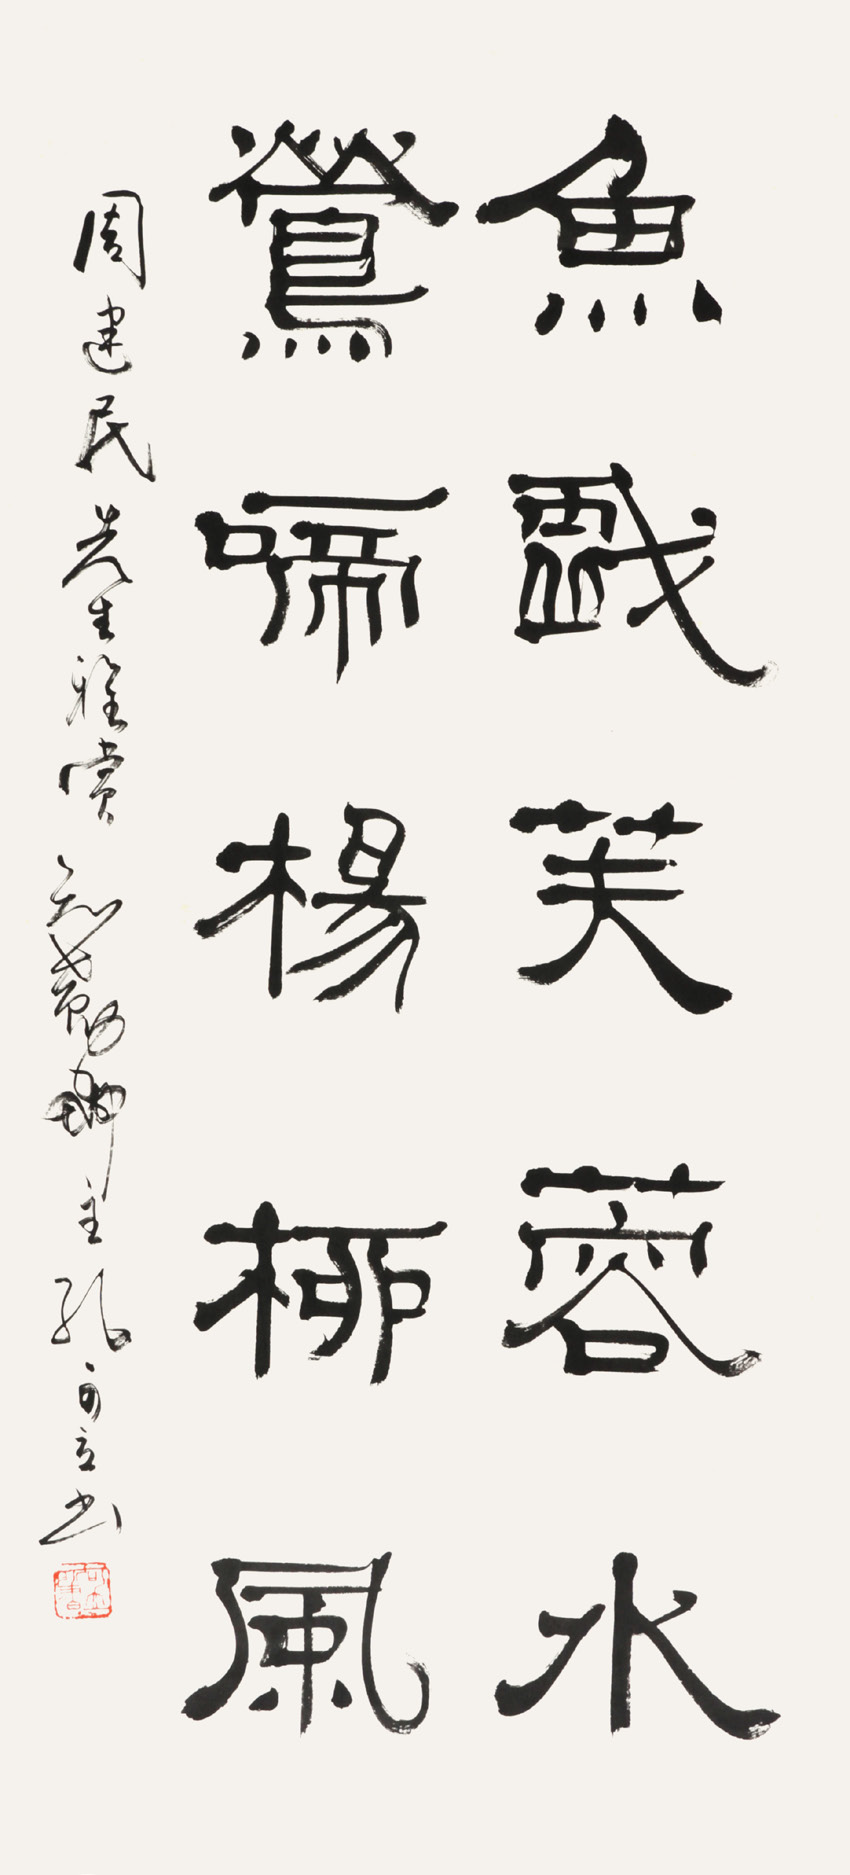 魚戲芙蓉水
鶯啼楊柳風
周建民先生雅賞 知勤軒主孔可立書